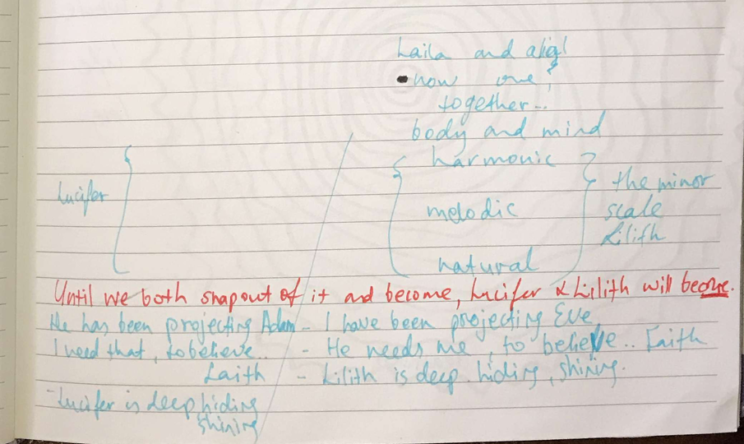 Laila and
now one,
together..
body and mind
harmonic
Lucifer
melodic
the minor
scale
Lilith
natural
Until we both snap out of it and become, Lucifer & Lilith will become.
He has been projecting Adam - I have been projecting Eve
I need that, to believe.. - He needs me, to believe.. Faith
Faith - Lilith is deep hiding, shining.
- Lucifer is deep hiding
shining